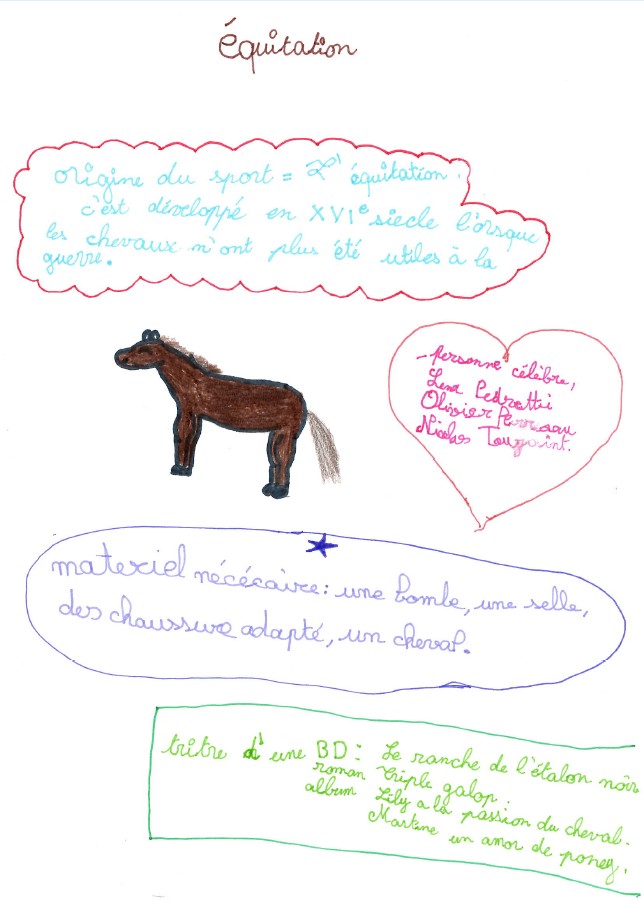 équitation
origine du sport = L' équitation.
c'est développé en XVIe siècle l'orsque
les chevaux n'ont plus été utiles à la
guerre.
- personne célèbre,
Lena Pedretti
Olivier Perreau
Nicolas Touzaint.
materiel nécécaire : une bombe, une selle,
des chaussure adapté, un cheval.
tritre d' une BD : Le ranche de l'étalon noir
roman triple galop :
album Lily a la passion du cheval.
Martine un amor de poney.